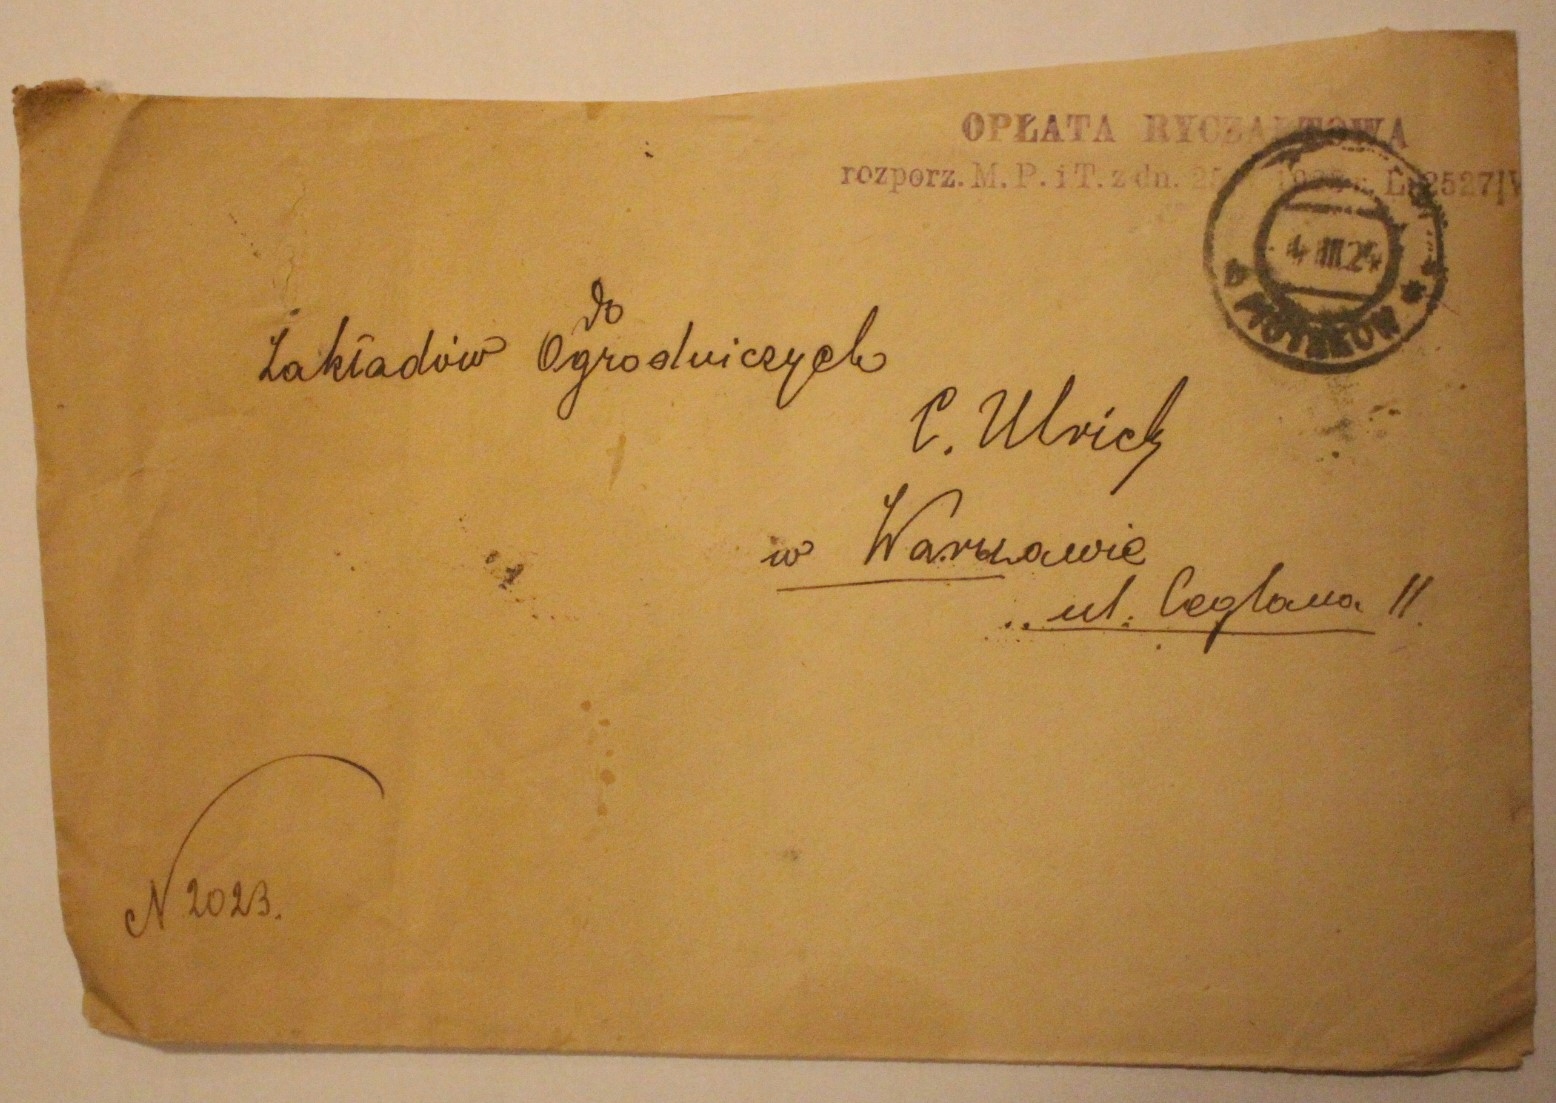 OPŁATA RYCZAŁTOWA
rozporz. M. P. i T. z dn. 25 L. 2527/V
4 III.24
b PIOTRKÓW
do
Zakładów Ogrodniczych
C. Ulrich
w Warszawie
ul. Ceglana 11.
N 2023.